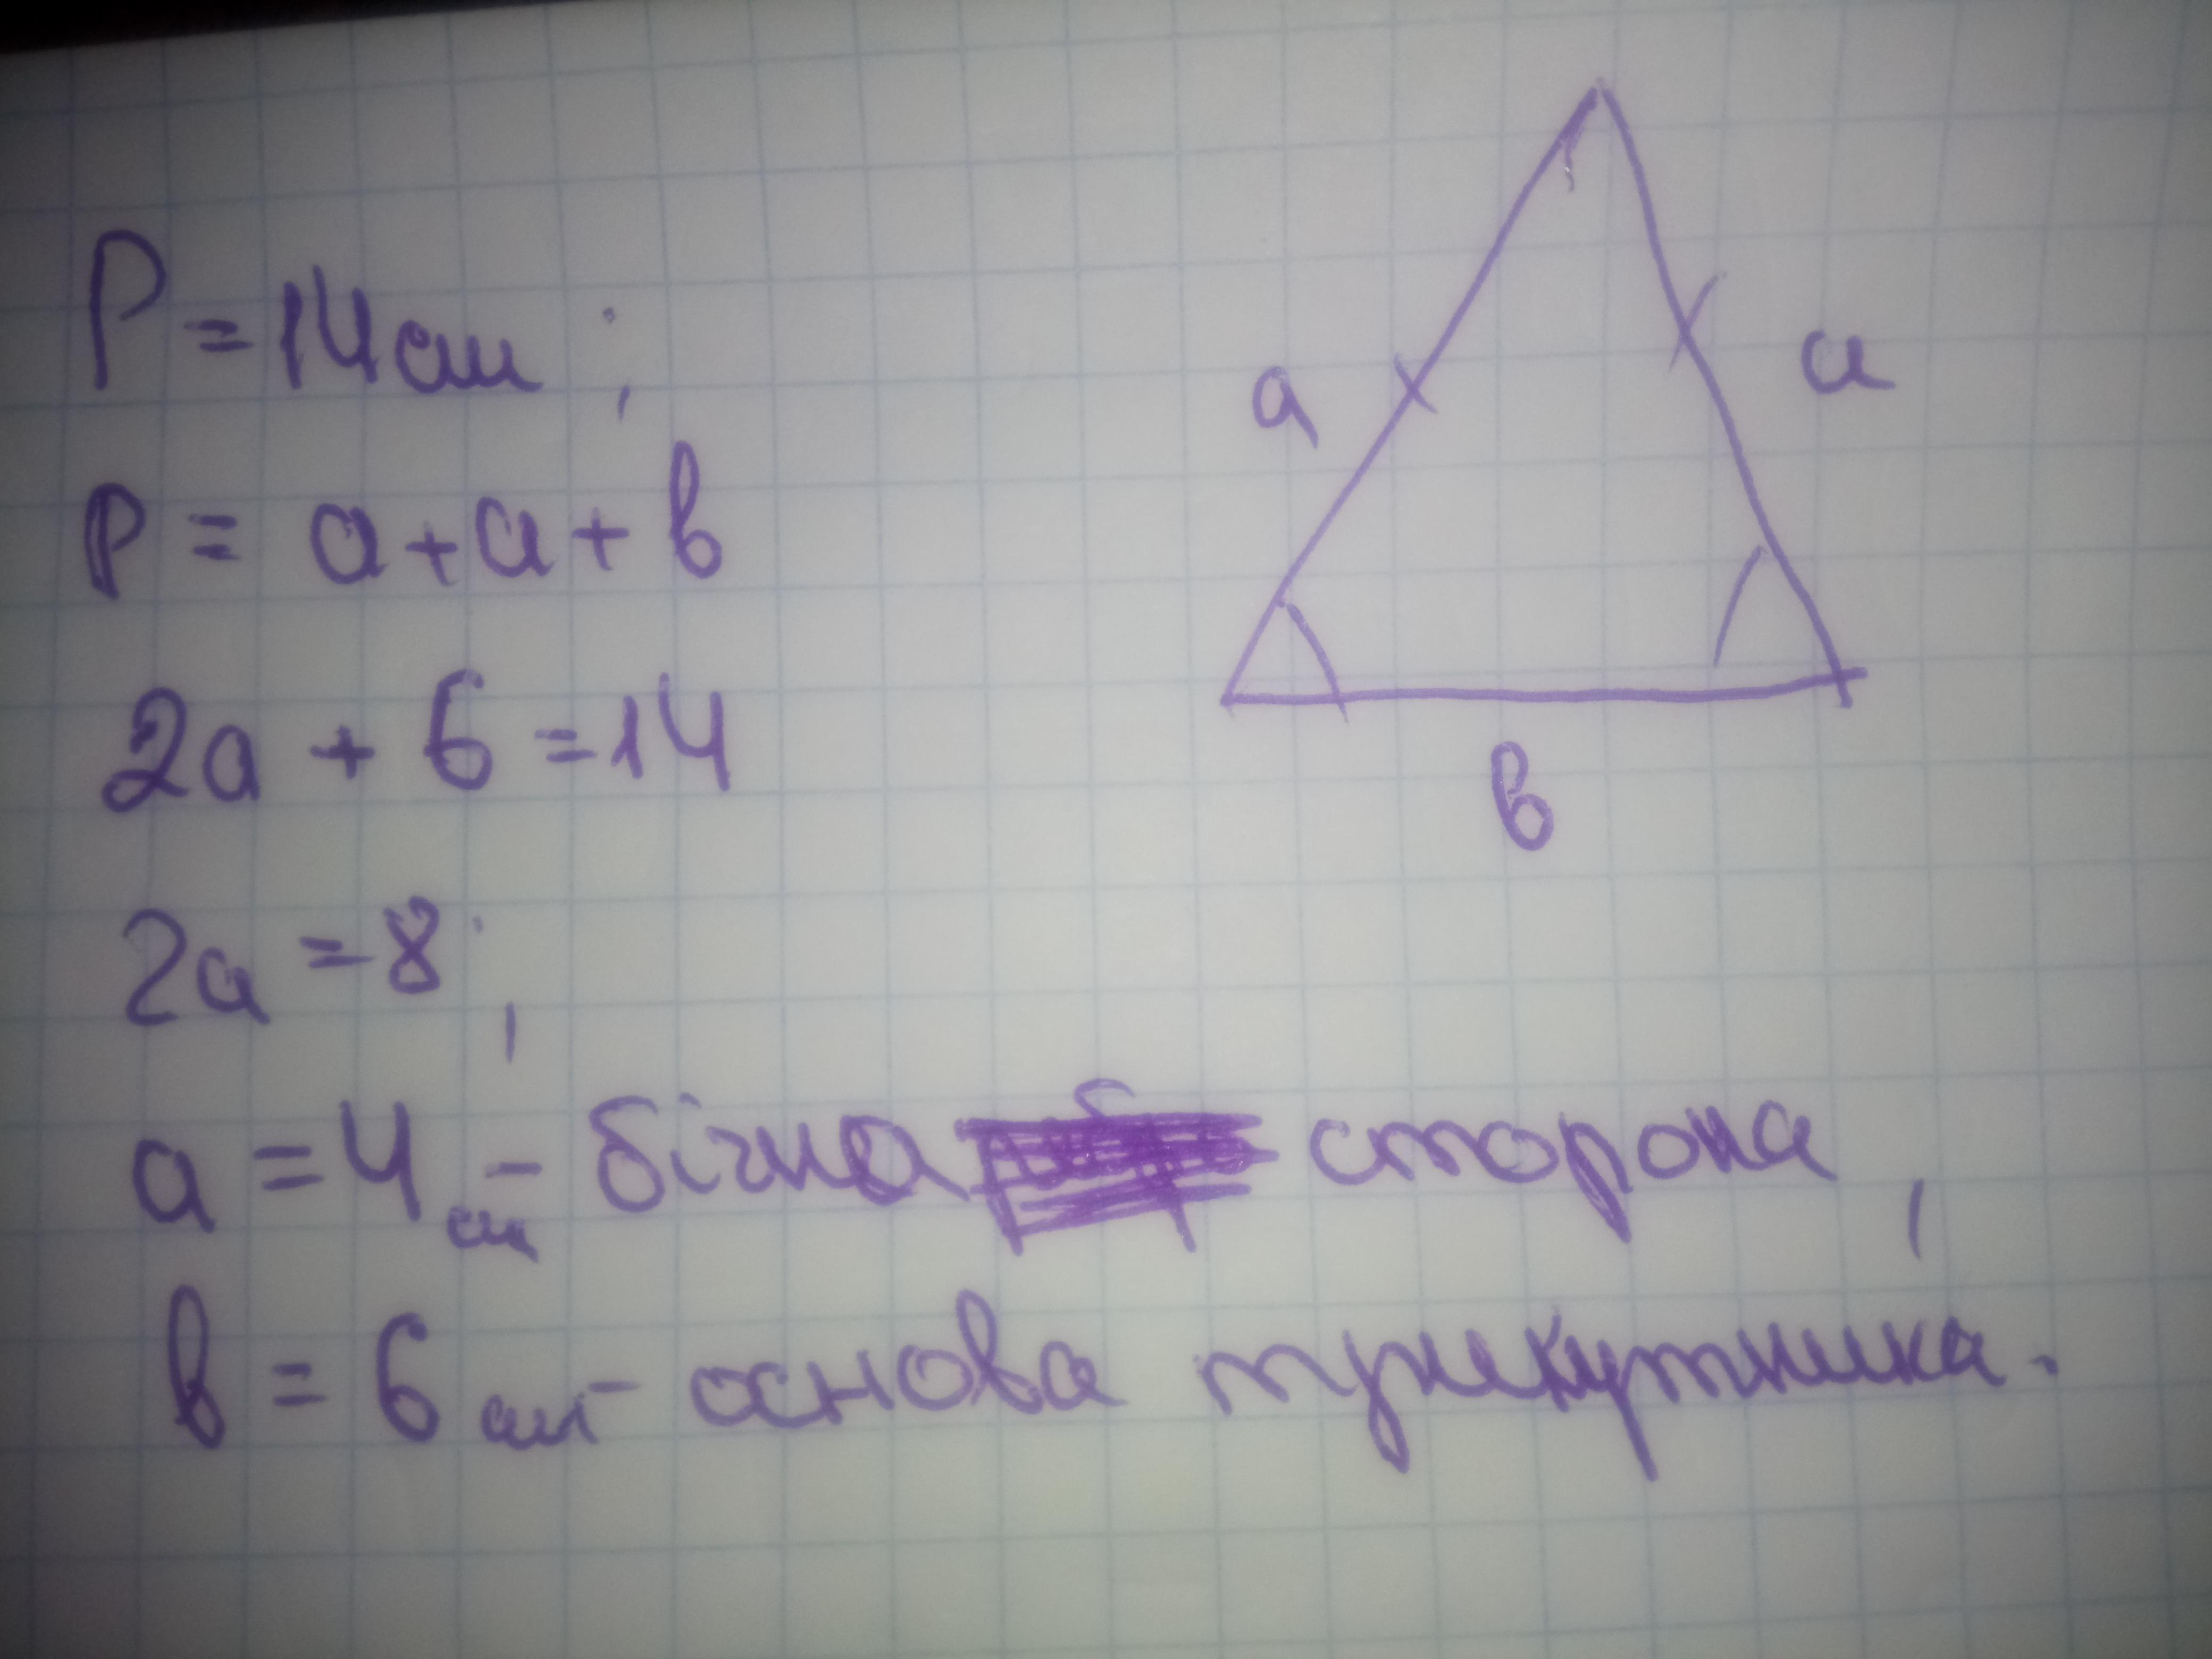 P = 14 см ;
P = a + a + в
2a + 6 = 14
2a = 8 ;
a = 4 см - бічна сторона ,
в = 6 см - основа трикутника .
a
a
в